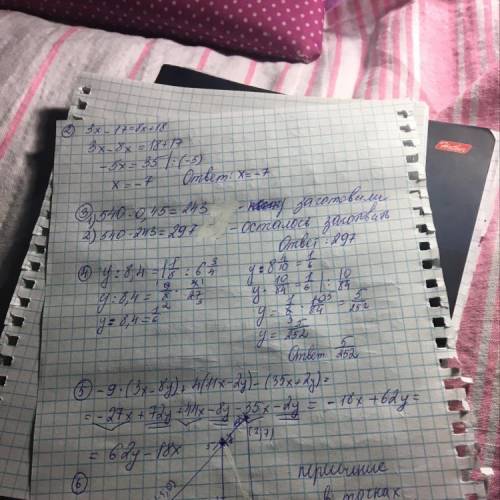 ② 3x - 17 = 8x + 18
3x - 8x = 18 + 17
-5x = 35 | : (-5)
x = -7 Ответ: x = -7
③ 1) 540 · 0,45 = 243 - заготовили
2) 540 - 243 = 297 - осталось заготовить
Ответ: 297
④ y : 8,4 = 1 1/8 : 6 3/4
y : 8,4 = 9/8 · 4/27
y : 8,4 = 1/6
y : 8 4/10 = 1/6
y · 10/84 = 1/6 | : 10/84
y = 1/6 : 10/84 = 5/252
y = 5/252
Ответ 5/252
⑤ -9 · (3x - 8y) + 4(11x - 2y) - (35x + 2y) =
= -27x + 72y + 44x - 8y - 35x - 2y = -18x + 62y =
= 62y - 18x
⑥
(2;7)
в точках